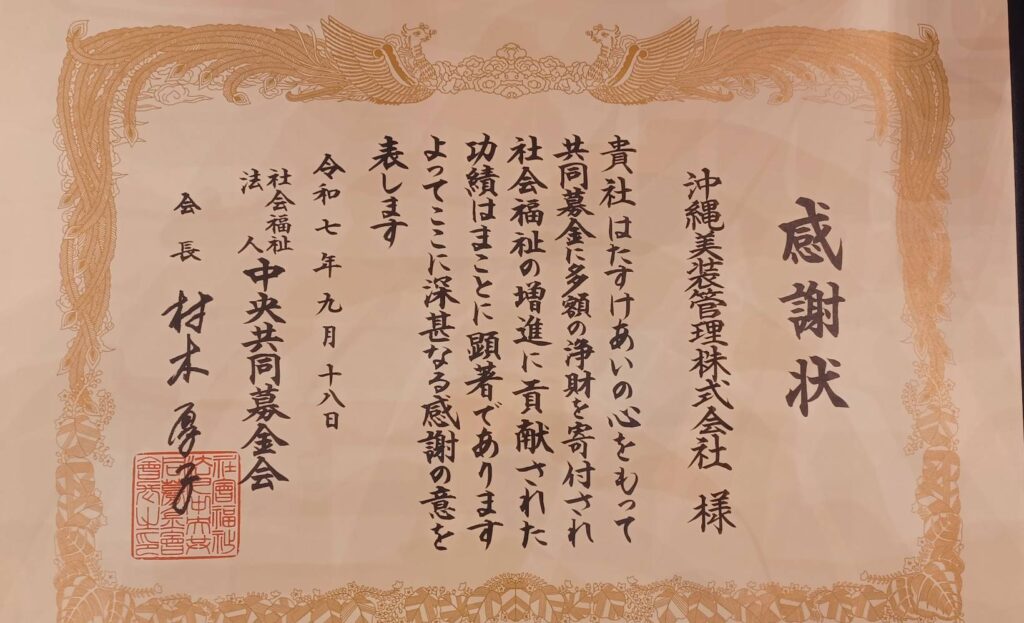 感謝状
沖縄美装管理株式会社 様
貴社はたすけあいの心をもって
共同募金に多額の浄財を寄付され
社会福祉の増進に貢献された
功績はまことに顕著であります
よってここに深甚なる感謝の意を
表します
令和七年九月十八日
社会福祉法人 中央共同募金会
会長 村木 厚子